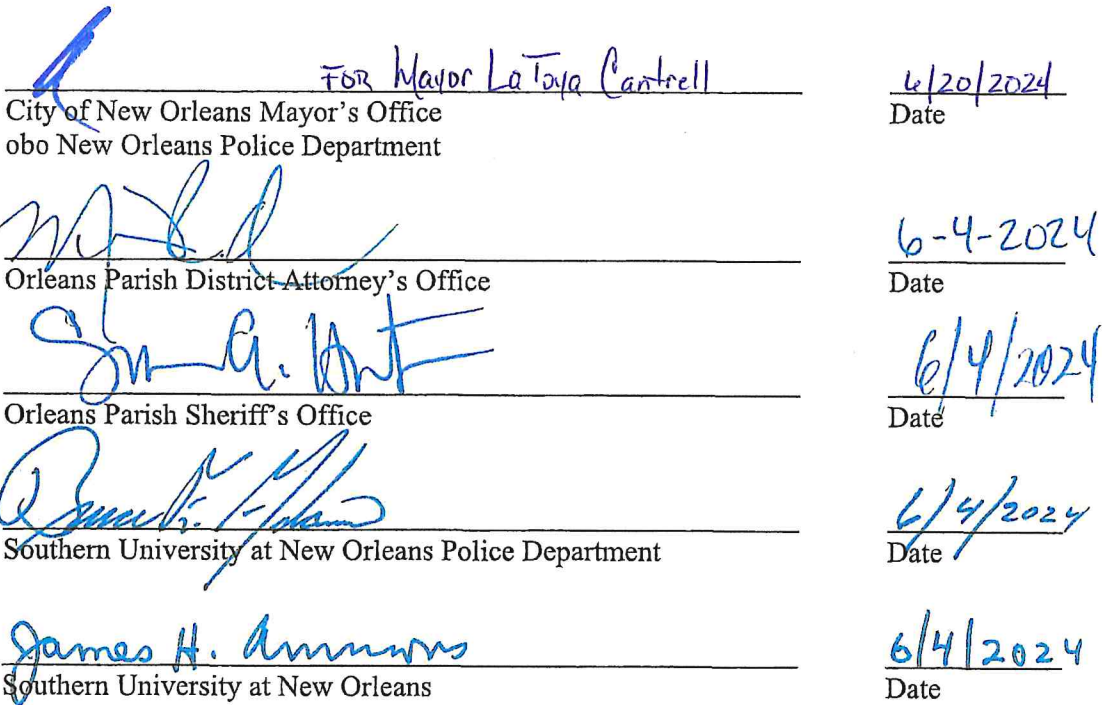 FOR Mayor LaToya Cantrell 6/20/2024
City of New Orleans Mayor's Office Date
obo New Orleans Police Department
6-4-2024
Orleans Parish District Attorney's Office Date
6/4/2024
Orleans Parish Sheriff's Office Date
6/4/2024
Southern University at New Orleans Police Department Date
James H. Ammons 6/4/2024
Southern University at New Orleans Date